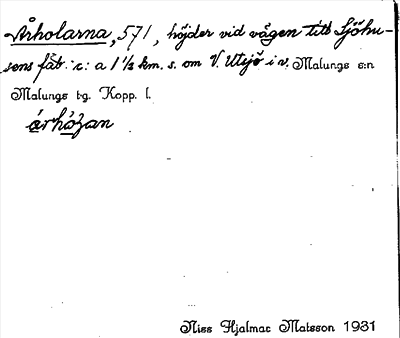 Årholarna, 571, höjder vid vägen till Sjöhu-
sens fäb. c:a 1 1/2 km. s. om V. Utsjö i v. Malungs s:n
Malungs tg. Kopp. l.
Nils Hjalmar Matsson 1931